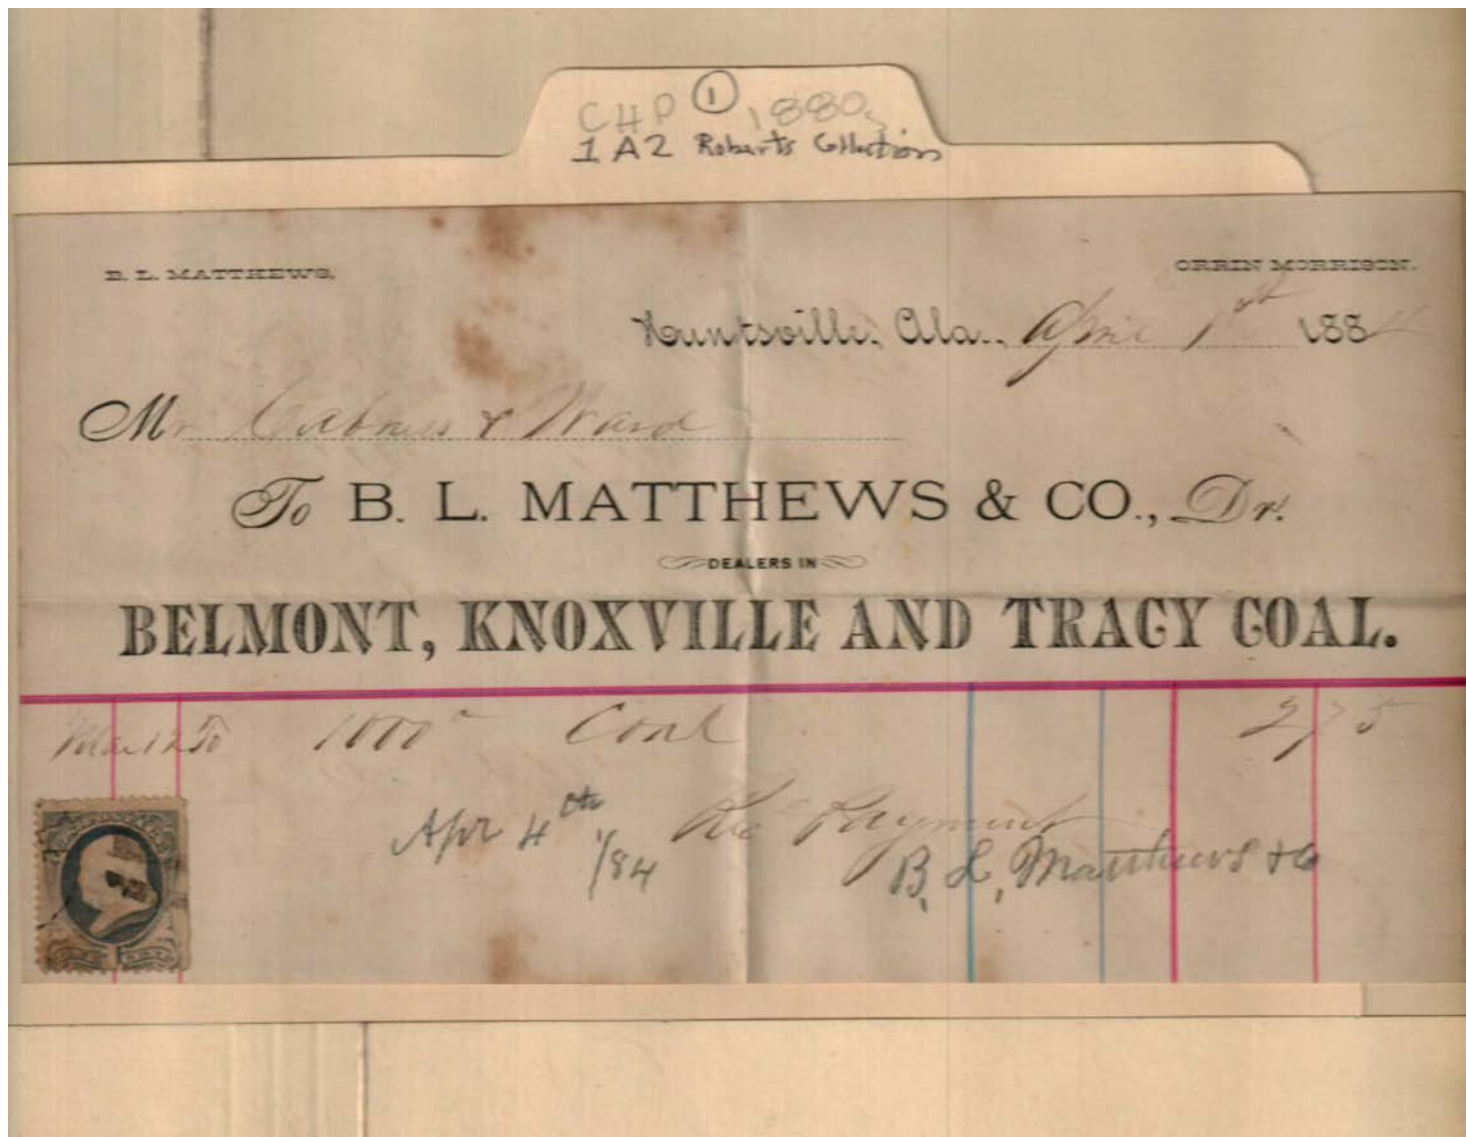 CHP 1 1880s
1A2 Roberts Collection
B. L. MATTHEWS.
ORRIN MORRISON.
Huntsville, Ala., April 1st 1884
Mr Cabniss & Ward
To B. L. MATTHEWS & CO., Dr.
DEALERS IN
BELMONT, KNOXVILLE AND TRACY COAL.
Mar 12 To 1000 Coal 2 75
Apr 4th /84 Rec Payment
B. L. Matthews & Co